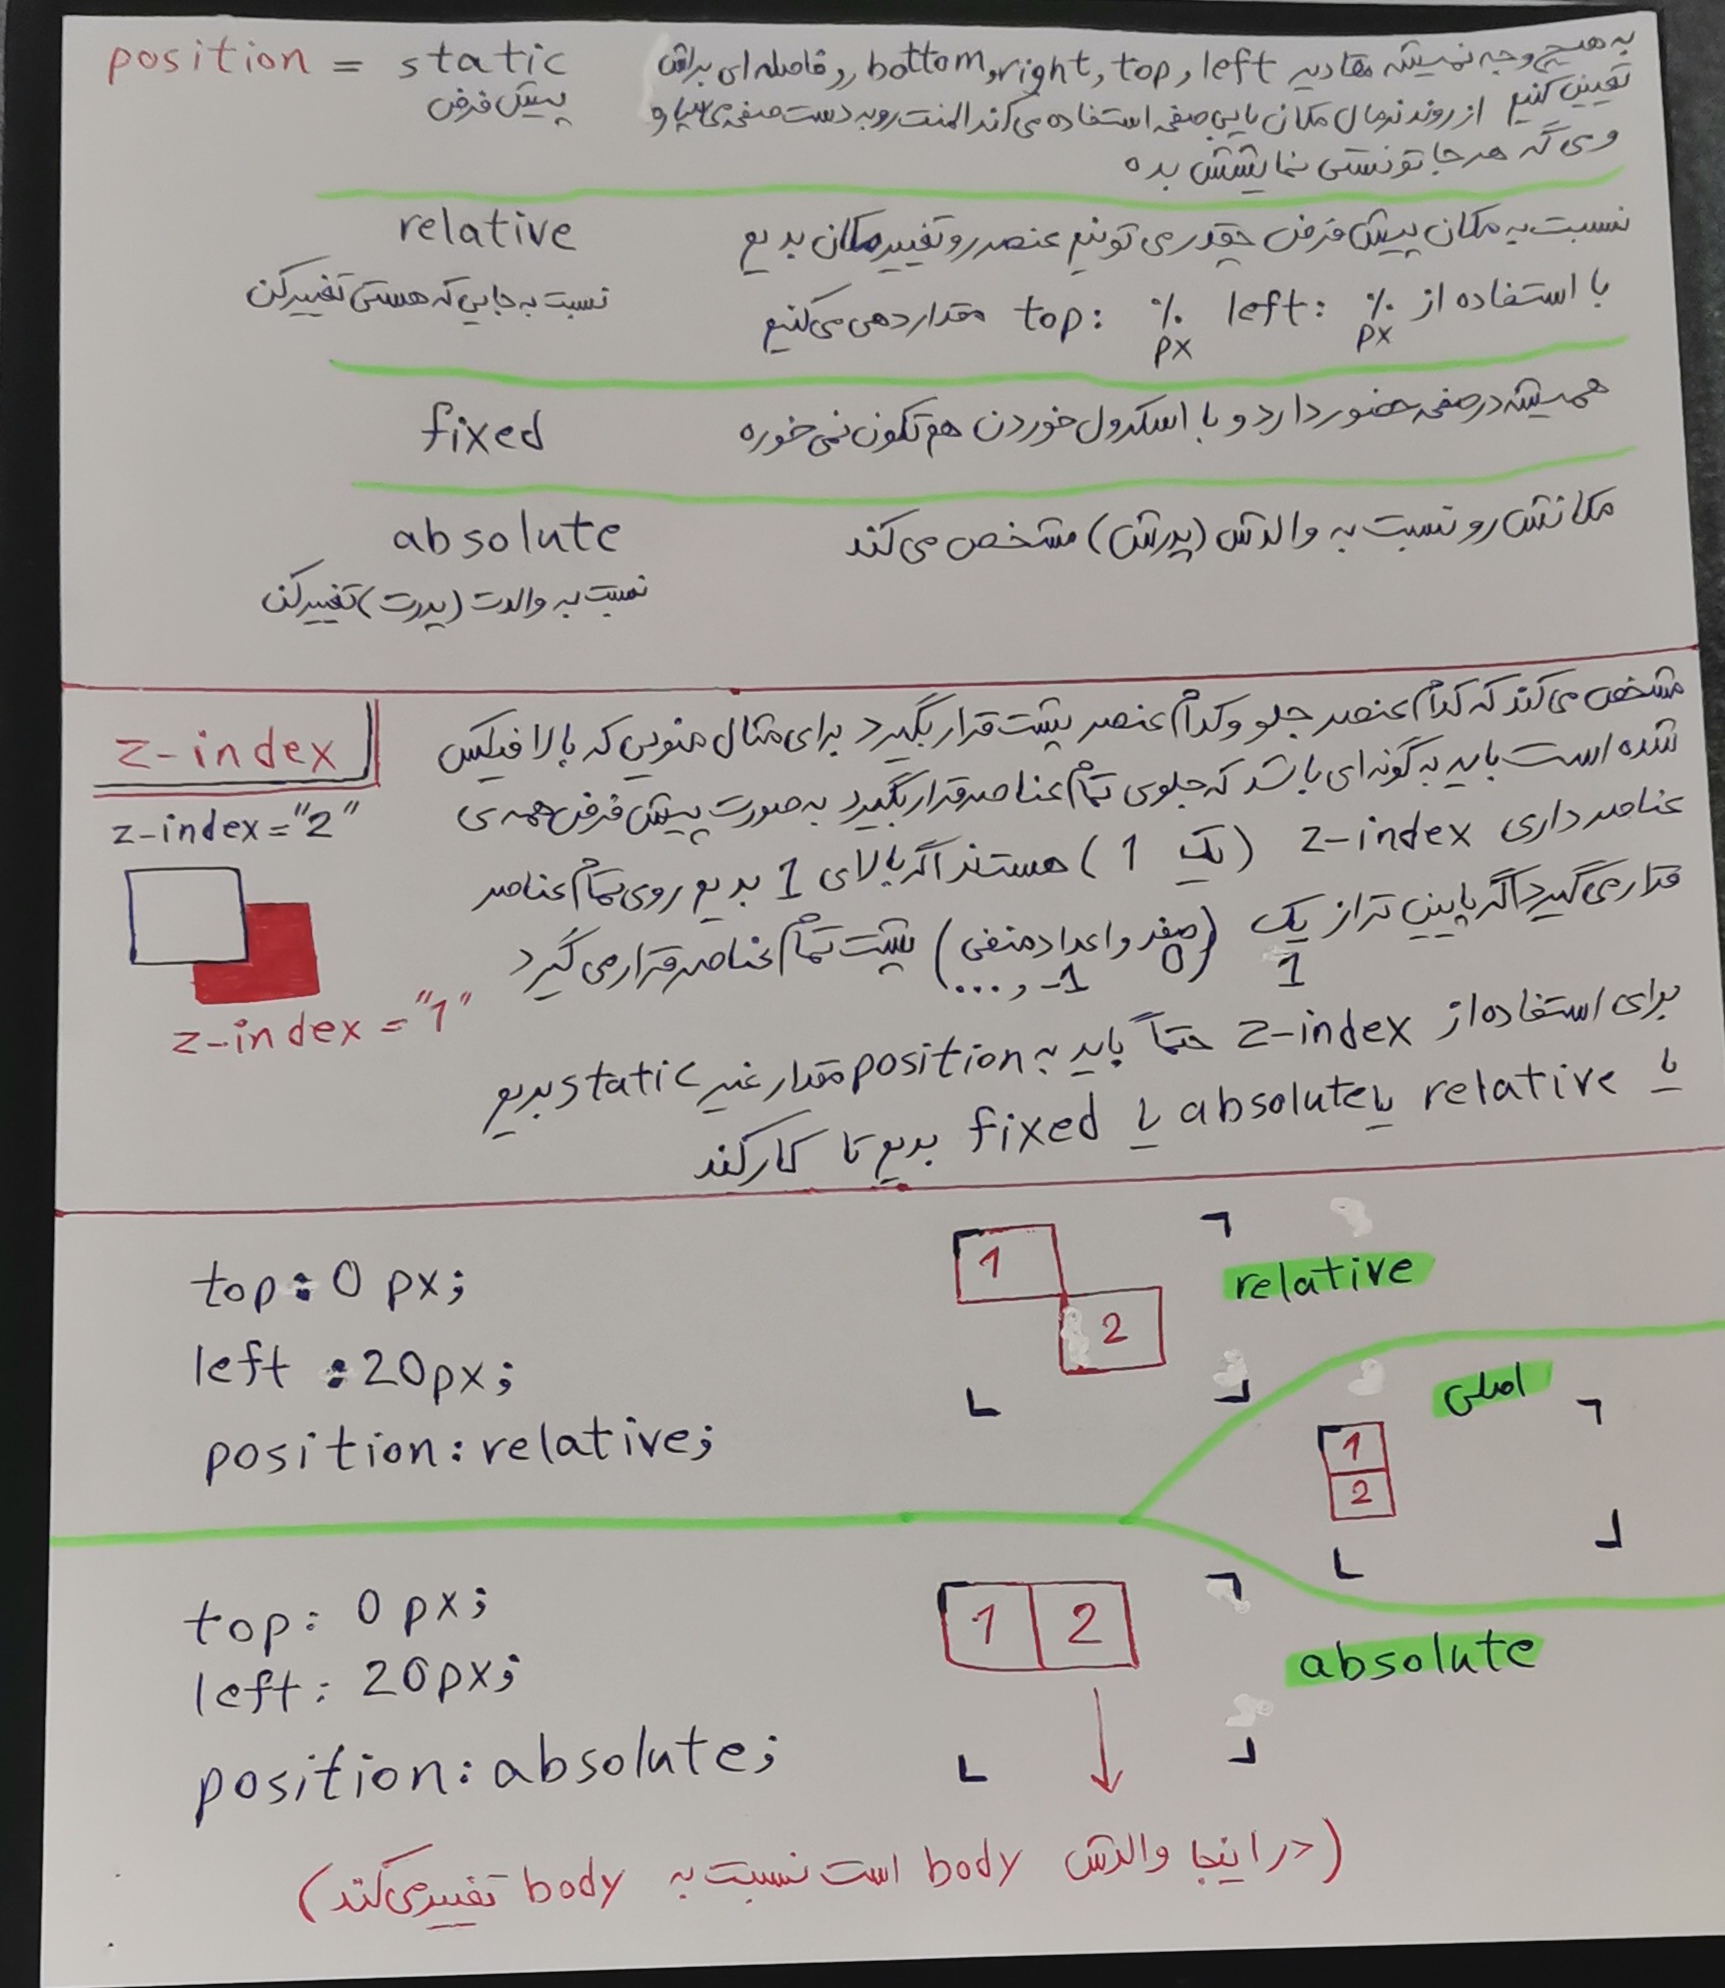 position = static
پیش فرض
به هیچ وجه نمیشه مقادیر left ,top ,right ,bottom رو فاصله ای براش
تعیین کنیم از روند نرمال مکان یابی صفحه استفاده می کند المنت رو به دست صفحه می سپارد
و می گه هر جا تونستی نمایشش بده
relative
نسبت به جایی که هستی تغییر کن
نسبت به مکان پیش فرض چقدر می تونیم عنصر رو تغییر مکان بدیم
با استفاده از left: % top: % مقداردهی می کنیم
px px
fixed
همیشه در صفحه حضور دارد و با اسکرول خوردن هم تکون نمی خوره
absolute
نسبت به والدت (پدرت) تغییر کن
مکانش رو نسبت به والدش (پدرش) مشخص می کند
z-index
مشخص می کند که کدام عنصر جلو و کدام عنصر پشت قرار بگیرد برای مثال منویی که بالا فیکس
شده است باید به گونه ای باشد که جلوی تمام عناصر قرار بگیرد به صورت پیش فرض همه ی
عناصر داری z-index (یک 1) هستند اگر بالای 1 بدیم روی تمام عناصر
قرار می گیرد اگر پایین تر از یک (صفر و اعداد منفی) پشت تمام عناصر قرار می گیرد
1 0 -1, ...
برای استفاده از z-index حتماً باید به position مقدار غیر static بدیم
یا relative یا absolute یا fixed بدیم تا کار کند
z-index="2"
z-index="1"
top: 0 px;
left: 20px;
position: relative;
1
2
relative
اصلی
1
2
top: 0 px;
left: 20px;
position: absolute;
1 2
absolute
(در اینجا والدش body است نسبت به body تغییر می کند)